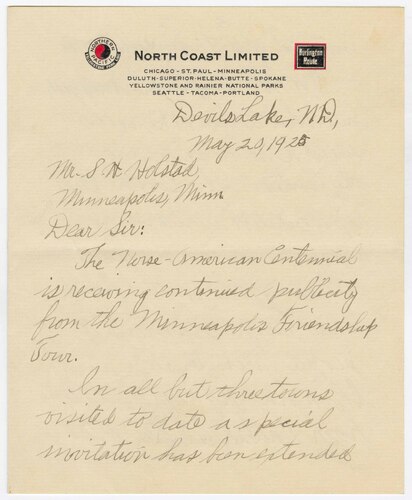 NORTHERN PACIFIC
NORTH COAST LIMITED
Burlington Route
CHICAGO - ST. PAUL - MINNEAPOLIS
DULUTH - SUPERIOR - HELENA - BUTTE - SPOKANE
YELLOWSTONE AND RAINIER NATIONAL PARKS
SEATTLE - TACOMA - PORTLAND
Devils Lake, N.D.,
May 20, 1925
Mr. S. H Holstad,
Minneapolis, Minn.
Dear Sir:
The Norse-American Centennial
is receiving continued publicity
from the Minneapolis Friendship
Tour.
In all but three towns
visited to date a special
invitation has been extended